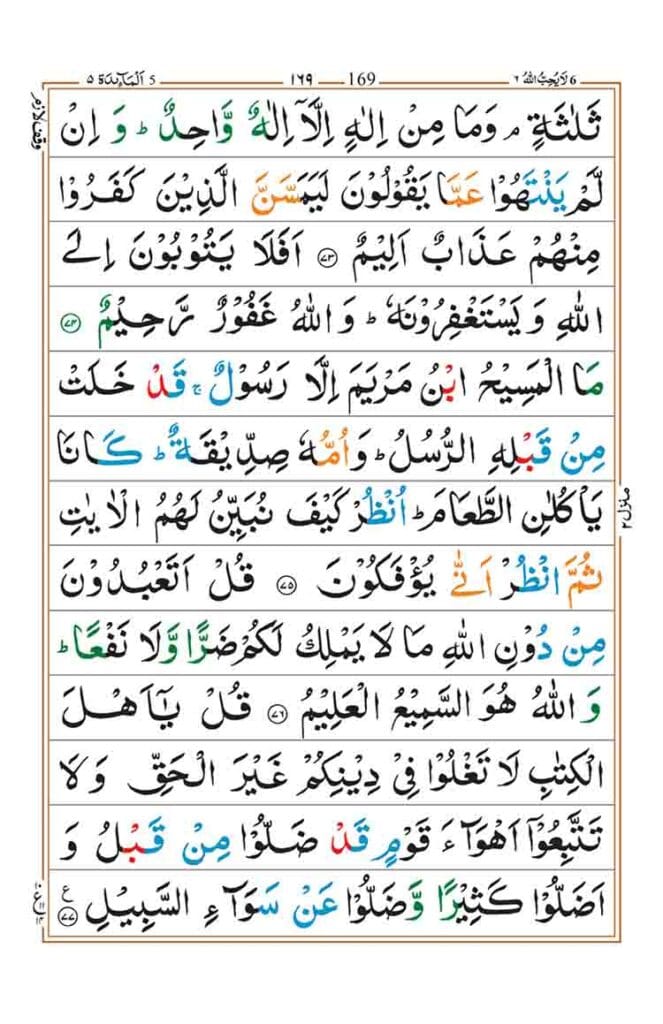 6 لَا يُحِبُّ اللّٰهُ ٦
169 ١٦٩
5 اَلْمَآئِدَة ٥
وقف لازم
ثَلٰثَةٍ ۘ وَمَا مِنْ اِلٰهٍ اِلَّاۤ اِلٰهٌ وَّاحِدٌ ؕ وَ اِنْ
لَّمْ يَنْتَهُوْا عَمَّا يَقُوْلُوْنَ لَيَمَسَّنَّ الَّذِيْنَ كَفَرُوْا
مِنْهُمْ عَذَابٌ اَلِيْمٌ ﴿۷۳﴾ اَفَلَا يَتُوْبُوْنَ اِلَى
اللّٰهِ وَيَسْتَغْفِرُوْنَهٗ ؕ وَاللّٰهُ غَفُوْرٌ رَّحِيْمٌ ﴿۷۴﴾
مَا الْمَسِيْحُ ابْنُ مَرْيَمَ اِلَّا رَسُوْلٌ ۚ قَدْ خَلَتْ
مِنْ قَبْلِهِ الرُّسُلُ ؕ وَاُمُّهٗ صِدِّيْقَةٌ ؕ كَانَا
يَاْكُلٰنِ الطَّعَامَ ؕ اُنْظُرْ كَيْفَ نُبَيِّنُ لَهُمُ الْاٰيٰتِ
ثُمَّ انْظُرْ اَنّٰى يُؤْفَكُوْنَ ﴿۷۵﴾ قُلْ اَتَعْبُدُوْنَ
مِنْ دُوْنِ اللّٰهِ مَا لَا يَمْلِكُ لَكُمْ ضَرًّا وَّلَا نَفْعًا ؕ
وَ اللّٰهُ هُوَ السَّمِيْعُ الْعَلِيْمُ ﴿۷۶﴾ قُلْ يٰۤاَهْلَ
الْكِتٰبِ لَا تَغْلُوْا فِىْ دِيْنِكُمْ غَيْرَ الْحَقِّ وَلَا
تَتَّبِعُوْۤا اَهْوَآءَ قَوْمٍ قَدْ ضَلُّوْا مِنْ قَبْلُ وَ
اَضَلُّوْا كَثِيْرًا وَّضَلُّوْا عَنْ سَوَآءِ السَّبِيْلِ ﴿۷۷﴾ ع
منزل ٢